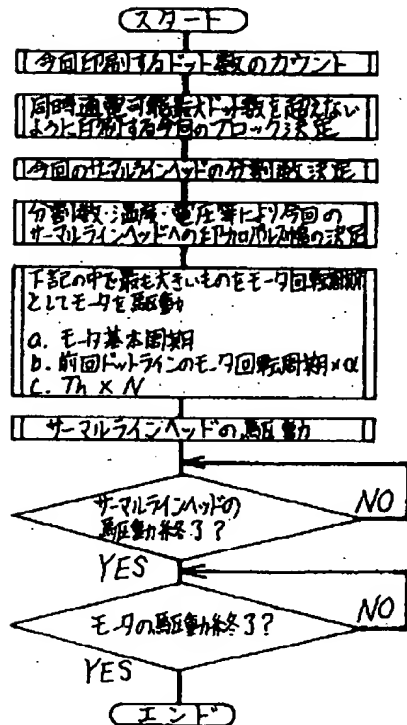 スタート
今回印刷するドット数のカウント
同時通電可能最大ドット数を超えない
ように印刷する今回のブロック決定
今回のサーマルラインヘッドの分割数決定
分割数・温度・電圧等により今回の
サーマルラインヘッドへの印加パルス幅の決定
下記の中で最も大きいものをモータ回転周期
としてモータを駆動
a. モータ基本周期
b. 前回ドットラインのモータ回転周期×α
c. Th × N
サーマルラインヘッドの駆動
サーマルラインヘッドの
駆動終了?
NO
YES
モータの駆動終了?
NO
YES
エンド